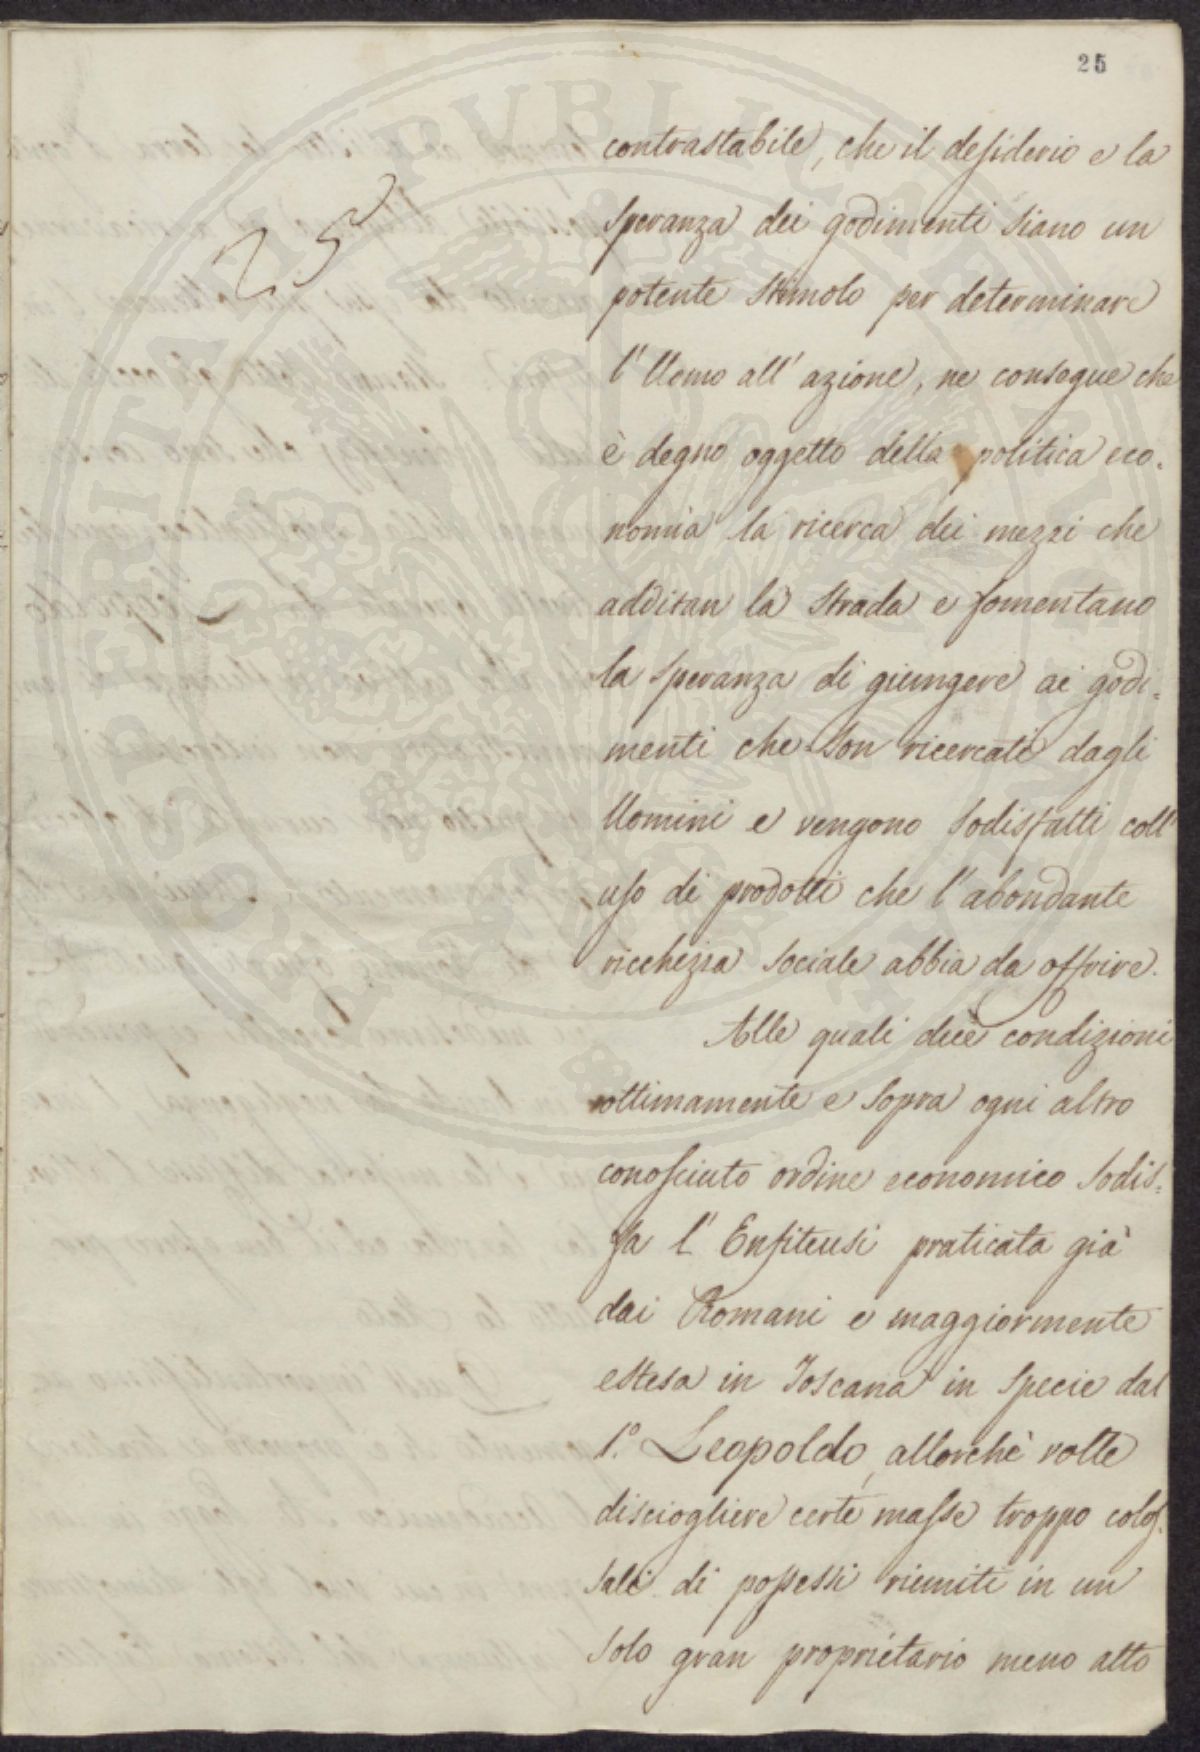 25
25
contrastabile, che il desiderio e la
speranza dei godimenti siano un
potente stimolo per determinare
l'Uomo all'azione, ne consegue che
è degno oggetto della politica eco-
nomia la ricerca dei mezzi che
additan la strada e fomentano
la speranza di giungere ai godi-
menti che son ricercati dagli
Uomini e vengono sodisfatti coll'
uso di prodotti che l'abondante
ricchezza sociale abbia da offrire.
Alle quali due condizioni
ottimamente e sopra ogni altro
conosciuto ordine economico sodis-
fa l'Enfiteusi praticata già
dai Romani e maggiormente
estesa in Toscana in specie dal
1.° Leopoldo, allorchè volle
disciogliere certe masse troppo colos-
sali di possessi riuniti in un
solo gran proprietario meno atto
PROSPERITATI PUBLICAE AUGENDAE